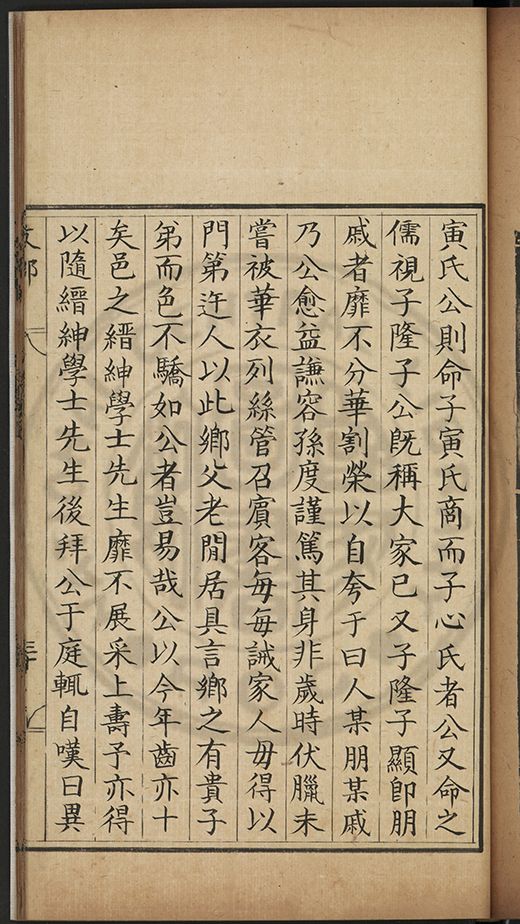 寅氏公則命子寅氏商而子心氏者公又命之
儒視子隆子公旣稱大家已又子隆子顯卽朋
戚者靡不分華割榮以自夸于曰人某朋某戚
乃公愈益謙容孫度謹篤其身非歲時伏臘未
嘗被華衣列絲管召賔客每每誡家人毋得以
門第迕人以此鄉父老閒居具言鄉之有貴子
弟而色不驕如公者豈易哉公以今年齒亦十
矣邑之縉紳學士先生靡不展采上壽予亦得
以隨縉紳學士先生後拜公于庭輒自嘆曰異